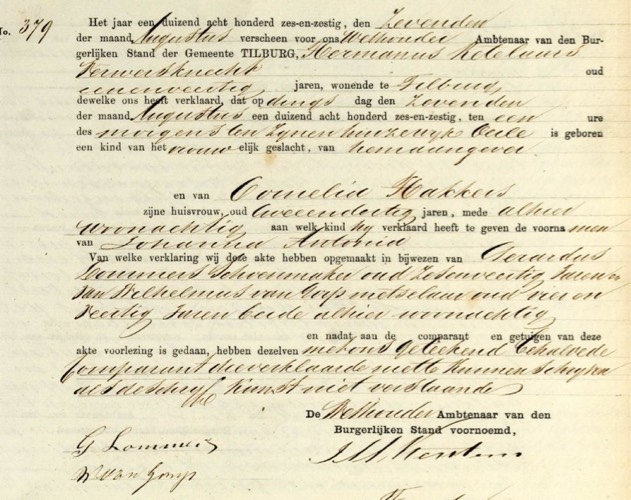 No. 379
Het jaar een duizend acht honderd zes-en-zestig, den Zevenden
der maand Augustus verscheen voor ons Wethouder Ambtenaar van den Bur-
gerlijken Stand der Gemeente TILBURG, Hermanus Ketelaars
Verversknecht oud
eenenveertig jaren, wonende te Tilburg,
dewelke ons heeft verklaard, dat op dings dag den Zevenden
der maand Augustus een duizend acht honderd zes-en-zestig, ten een ure
des morgens ten Zynen huize is geboren
een kind van het vrouwelijk geslacht, van hem aangever
en van Cornelia Hakkers
zijne huisvrouw, oud tweeendertig jaren, mede alhier
woonachtig aan welk kind hy verklaard heeft te geven de voornamen
van Johanna Antonia
Van welke verklaring wij deze akte hebben opgemaakt in bijwezen van Gerardus
Lommers Schoenmaker oud Zesenveertig Jaren en
van Wilhelmus van Gorp metselaar oud vier en
Veertig Jaren beide alhier woonachtig
en nadat aan de comparant en getuigen van deze
akte voorlezing is gedaan, hebben dezelven met ons geteekend behalve de
Comparant die verklaarde niet te kunnen schryven
als de Schryf Kunst niet verstaande
De Wethouder Ambtenaar van den
Burgerlijken Stand voornoemd,
G Lommers
W van Gorp